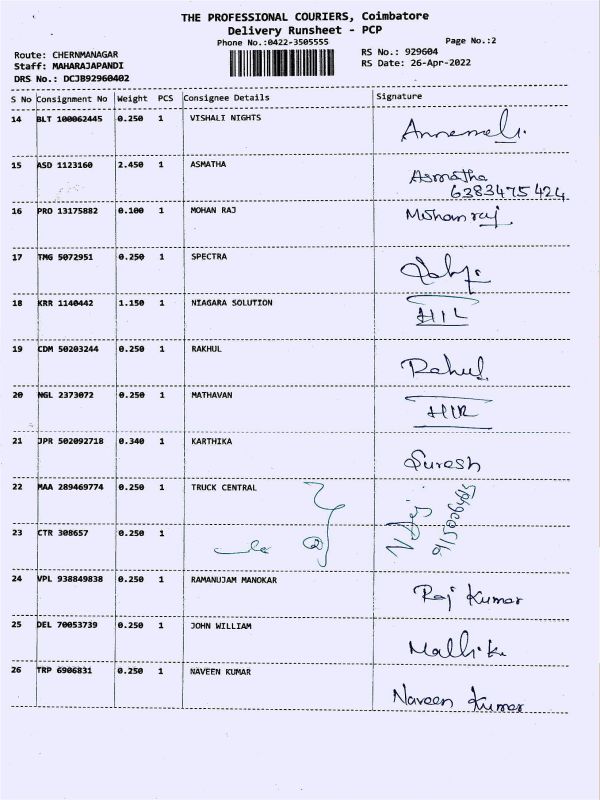 THE PROFESSIONAL COURIERS, Coimbatore
Delivery Runsheet - PCP
Phone No.:0422-3505555
Page No.:2
Route: CHERNMANAGAR
RS No.: 929604
Staff: MAHARAJAPANDI
RS Date: 26-Apr-2022
DRS No.: DCJB92960402
S No Consignment No Weight PCS Consignee Details Signature
14 BLT 100062445 0.250 1 VISHALI NIGHTS
15 ASD 1123160 2.450 1 ASMATHA Asmatha
6383475424
16 PRO 13175882 0.100 1 MOHAN RAJ Mohanraj
17 TMG 5072951 0.250 1 SPECTRA
18 KRR 1140442 1.150 1 NIAGARA SOLUTION
19 CDM 50203244 0.250 1 RAKHUL Rahul
20 NGL 2373072 0.250 1 MATHAVAN
21 JPR 502092718 0.340 1 KARTHIKA Suresh
22 MAA 289469774 0.250 1 TRUCK CENTRAL
23 CTR 308657 0.250 1
24 VPL 938849838 0.250 1 RAMANUJAM MANOKAR Raj Kumar
25 DEL 70053739 0.250 1 JOHN WILLIAM Mallika
26 TRP 6906831 0.250 1 NAVEEN KUMAR Naveen Kumar